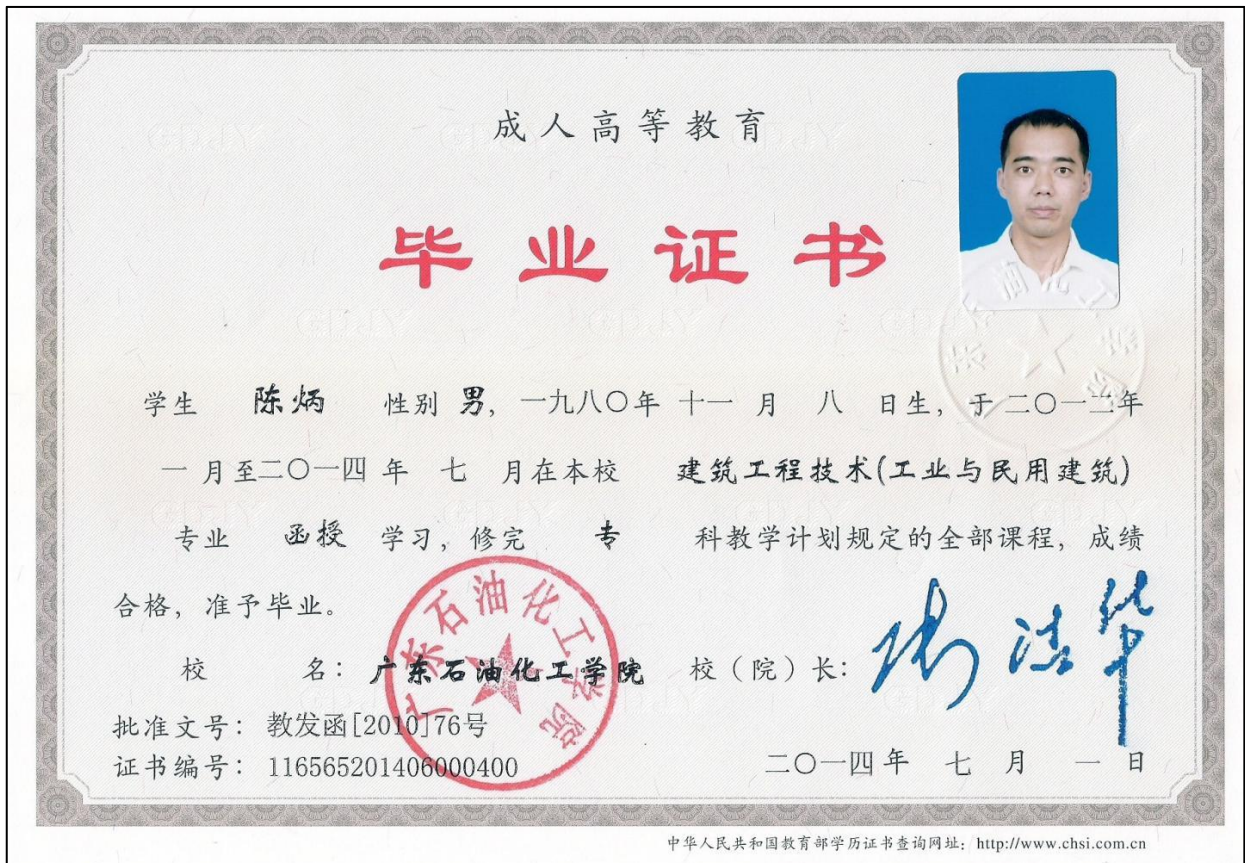 成人高等教育
毕业证书
学生 陈炳 性别 男，一九八〇年 十一 月 八 日生，于二〇一二年
一 月至二〇一四 年 七 月在本校 建筑工程技术(工业与民用建筑)
专业 函授 学习，修完 专 科教学计划规定的全部课程，成绩
合格，准予毕业。
校 名：广东石油化工学院 校（院）长：
广东石油化工学院
批准文号：教发函[2010]76号
证书编号：116565201406000400
二〇一四年 七 月 一 日
中华人民共和国教育部学历证书查询网址：http://www.chsi.com.cn